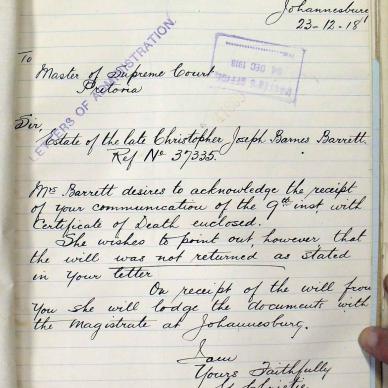 Johannesburg
23-12-18
To
Master of Supreme Court
Pretoria
LETTERS OF ADMINISTRATION
DEC 1918
Sir,
Estate of the late Christopher Joseph Barnes Barrett.
Ref No 37335.
Mrs Barrett desires to acknowledge the receipt
of your communication of the 9th inst. with
Certificate of Death enclosed.
She wishes to point out however that
the will was not returned as stated
in your letter
On receipt of the will from
you she will lodge the documents with
the Magistrate at Johannesburg.
I am
Yours Faithfully